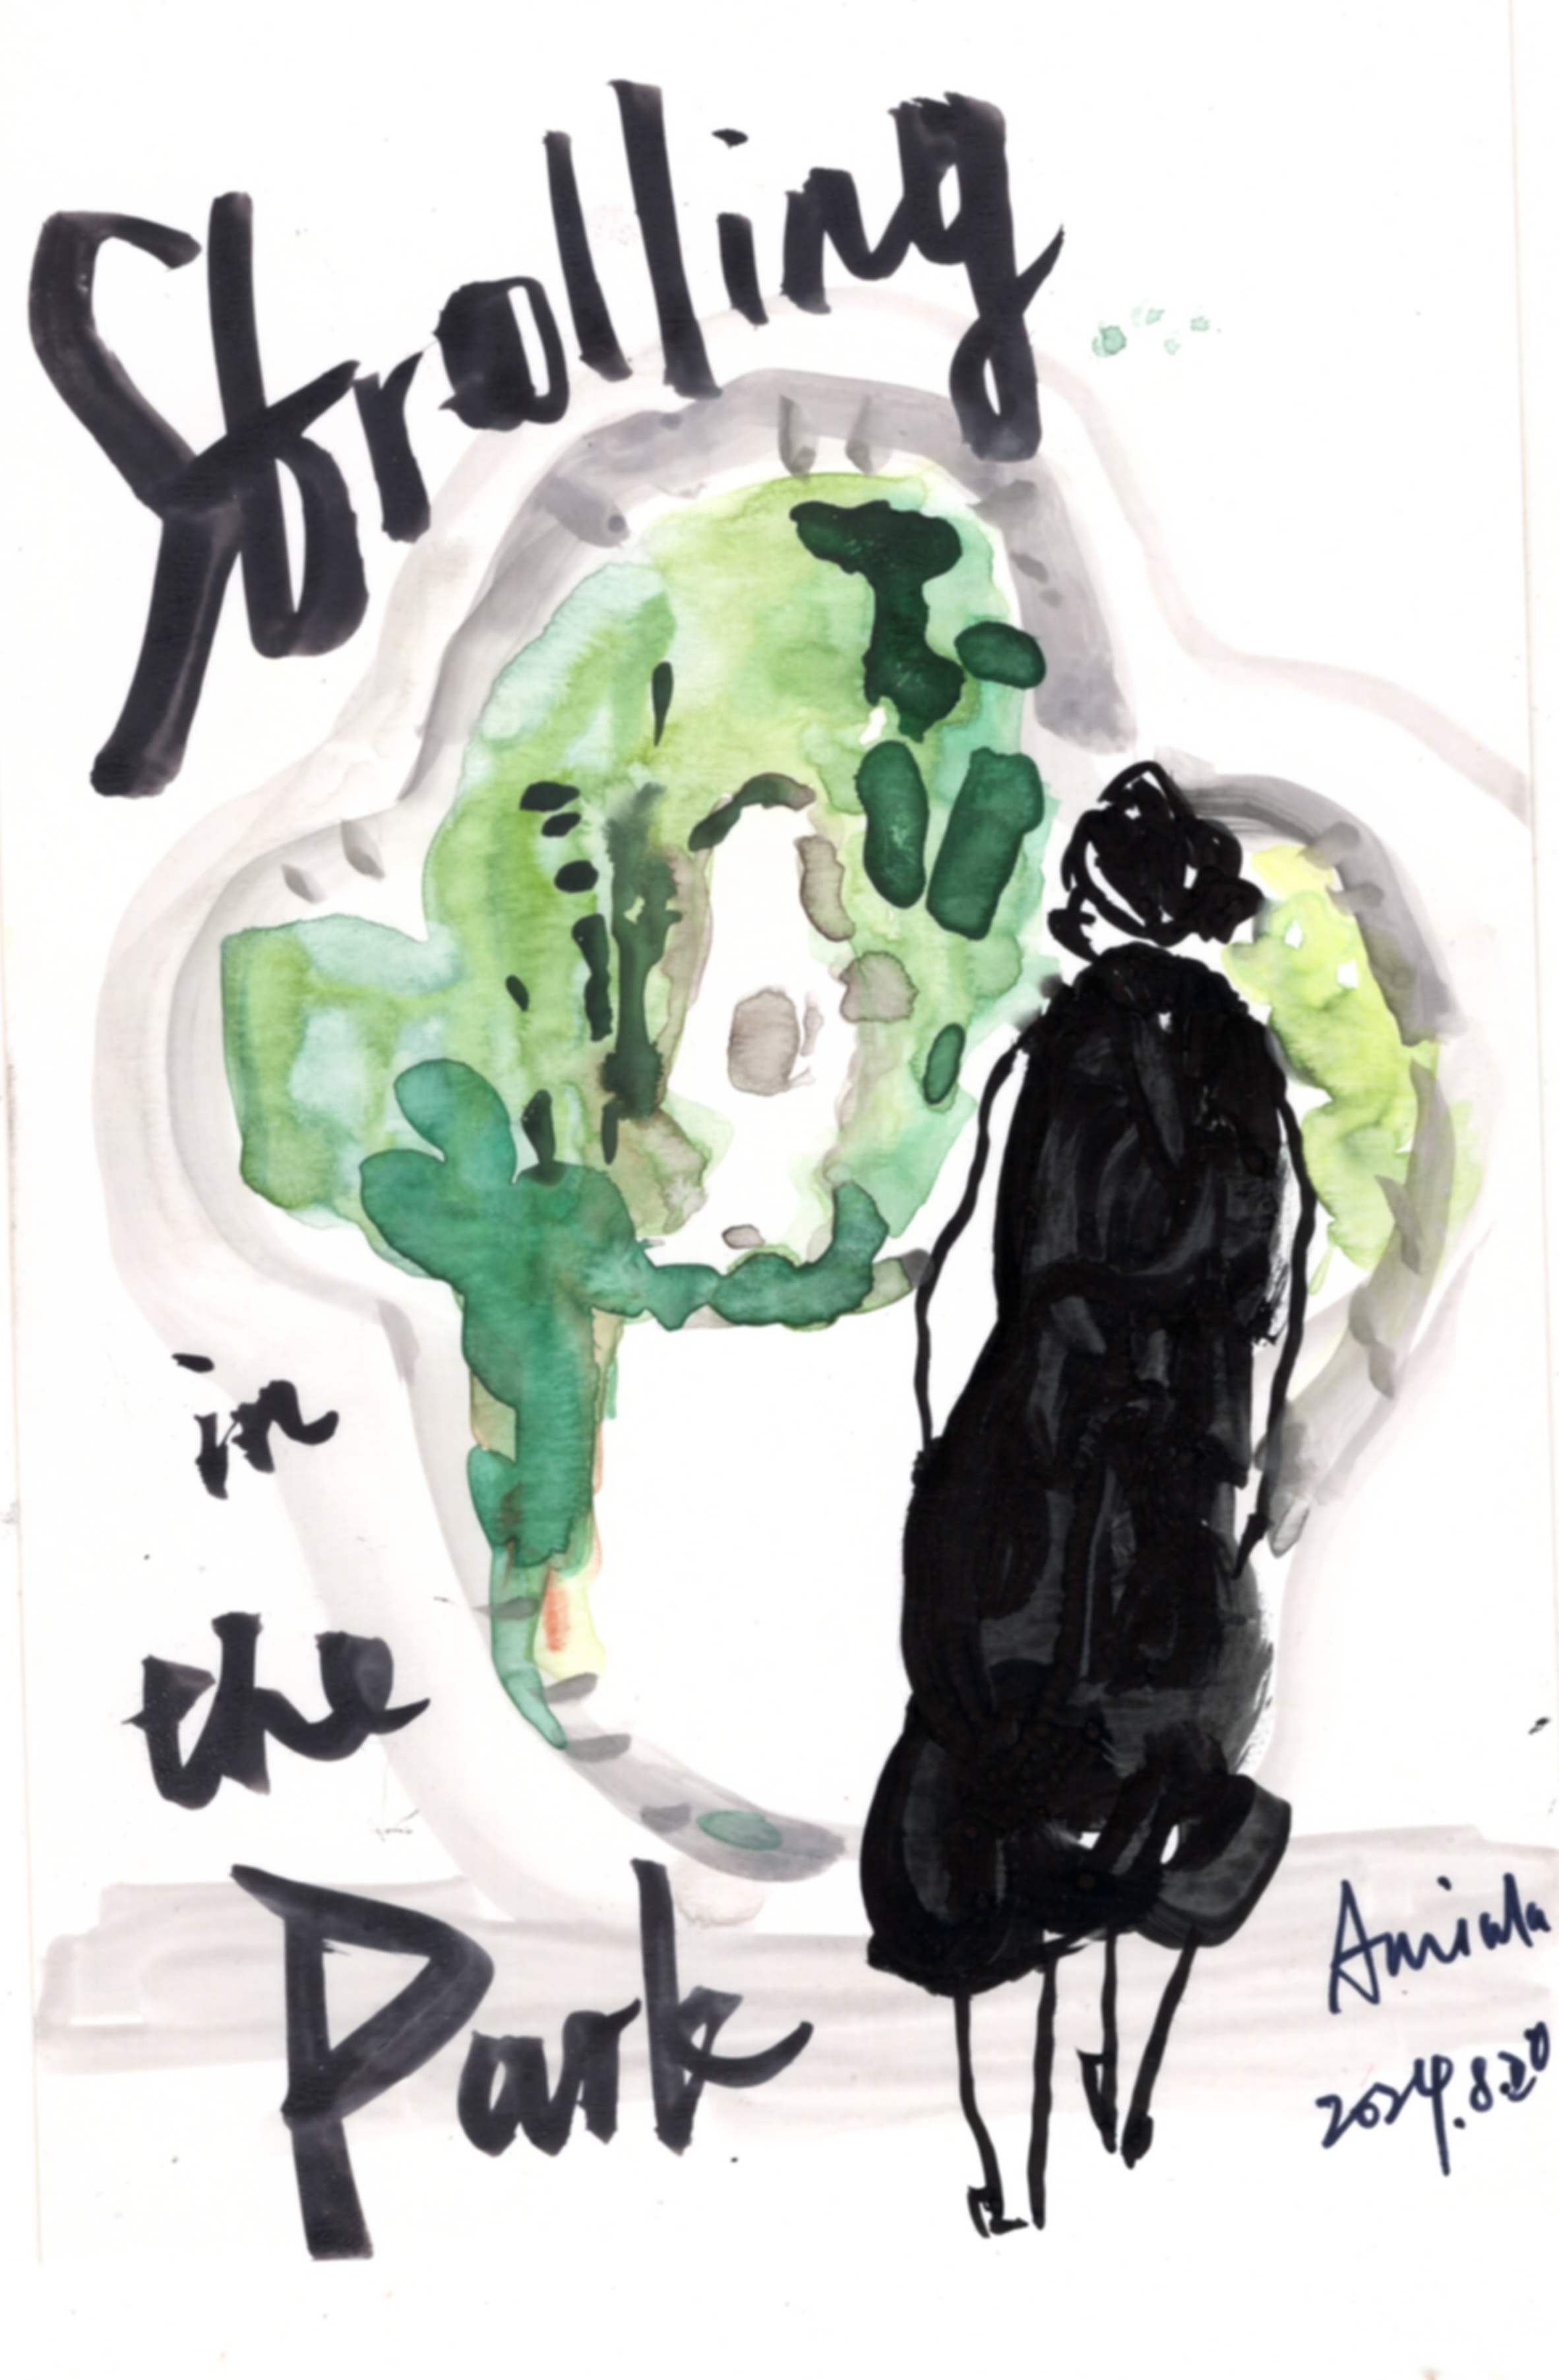 Strolling
in
the
Park
2024.8.20